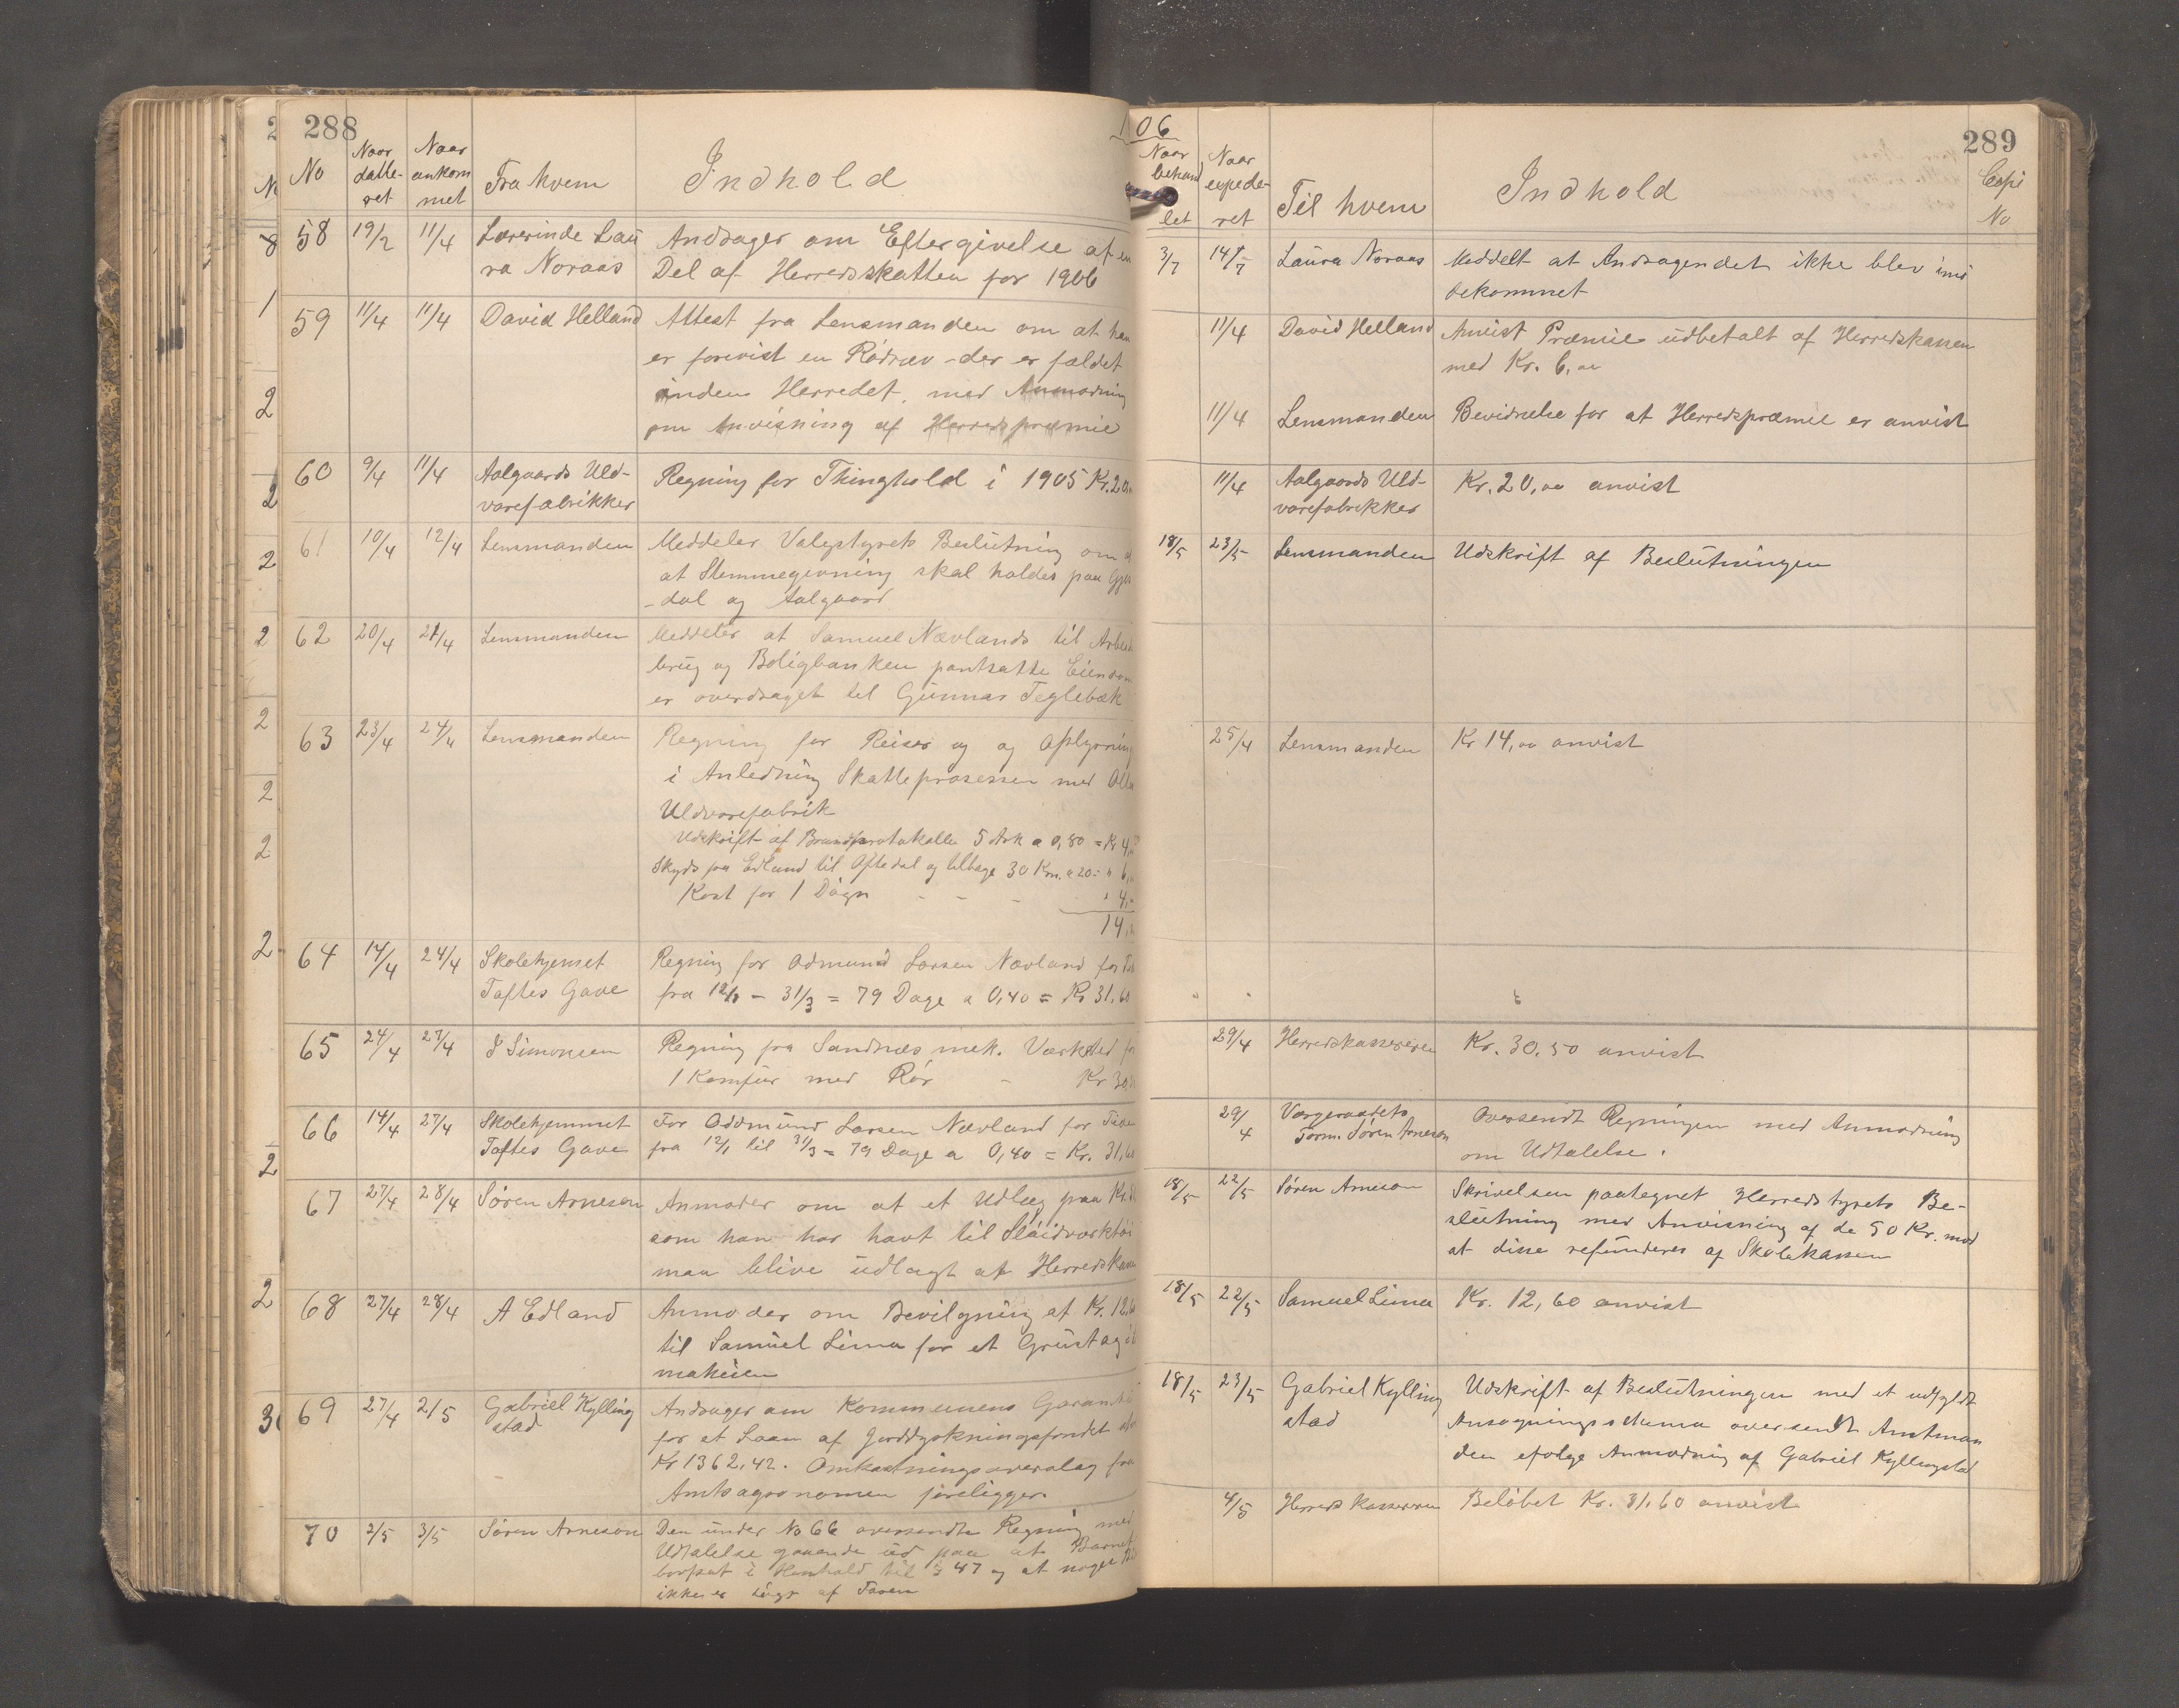 288
No
Naar datte-ret
Naar ankom met
Fra hvem
Indhold
58 19/2 11/4 Lærerinde Lau Andrager om Eftergivelse af en
ra Noraas Del af Herredsskatten for 1906
59 11/4 11/4 David Helland Attest fra Lensmanden om at han
er forevist en Rødræv der er fældet
inden Herredet, med Anmodning
om Anvisning af Herredspræmie
60 9/4 11/4 Aalgaards Uld- Regning for Thinghold i 1905 Kr. 20,
varefabrikker
61 10/4 12/4 Lensmanden Meddeler Valgstyrets Beslutning om
at Stemmegivning skal holdes paa Gjes
-dal og Aalgaard
62 20/4 21/4 Lensmanden Meddeler at Samuel Nævlands til Arbeid
brug og Boligbanken pantsatte Eiendom
er overdraget til Gunnar Teglebæk
63 23/4 24/4 Lensmanden Regning for Reiser og og Oplysning
i Anledning Skatteprosessen med
Uldvarefabrik
Udskrift af Brandprotokollen 5 Ark a 0,80 = Kr 4,
Skyds fra Edland til Oftedal og tilbage 30 Km. a 20 = " 6,
Kost for 1 Døgn - - - " 4,-
14,
64 14/4 24/4 Skolehjemet Regning for Odmund Larsen Nævland for
Toftes Gave fra 12/1 - 31/3 = 79 Dage a 0,40 = Kr 31,60
65 24/4 27/4 S Simonsen Regning fra Sandnæs mek. Værksted for
1 Komfur med Rør - Kr 30,
66 14/4 27/4 Skolehjemmet For Oddmund Larsen Nævland for
Toftes Gave fra 12/1 til 31/3 = 79 Dage a 0,40 = Kr. 31,60
67 27/4 28/4 Søren Arneson Anmoder om at et Udlæg paa Kr.
som han har havt til Sløidværktøi
maa blive udlagt af Herredskassen
68 27/4 28/4 A Edland Anmoder om Bevilgning af Kr. 12,60
til Samuel Lima for et Grustag
69 27/4 2/5 Gabriel Kylling Andrager om Kommunens Garanti
stad for et Laan af Jorddyrkningsfondet
Kr 1362,42. Omkostningsoverslag fra
Amtsagronomen foreligger.
70 2/5 3/5 Søren Arneson Den under No 66 oversendte Regning med
Udtalelse gaaende ud paa at Barnet
bortsat i Henhold til § 47 og at noget
ikke er af Faren
106
289
Naar behand let
Naar expede-ret
Til hvem
Indhold
Copi No
3/7 14/7 Laura Noraas Meddelt at Andragendet ikke blev imø
dekommet
11/4 David Helland Anvist Præmie udbetalt af Herredskassen
med Kr. 6,00
11/4 Lensmanden Bevidnelse for at Herredspræmie er anvist
11/4 Aalgaards Uld- Kr. 20,00 anvist
varefabrikker
18/5 23/5 Lensmanden Udskrift af Beslutningen
25/4 Lensmanden Kr 14,00 anvist
29/4 Herredskassereren Kr. 30.50 anvist
29/4 Værgeraadets Oversendt Regningen med Anmodning
Form. Søren Arneson om Udtalelse.
18/5 22/5 Søren Arneson Skrivelsen paategnet Herredstyrets Be-
slutning med Anvisning af de 50 Kr. mod
at disse refunderes af Skolekassen
18/5 22/5 Samuel Lima Kr. 12,60 anvist
18/5 23/5 Gabriel Kylling Udskrift af Beslutningen med et udfyldt
stad Ansøgningsskema oversendt Amtman
den efølge Anmodning af Gabriel Kyllingstad
4/5 Herredskassereren Beløbet Kr. 31,60 anvist